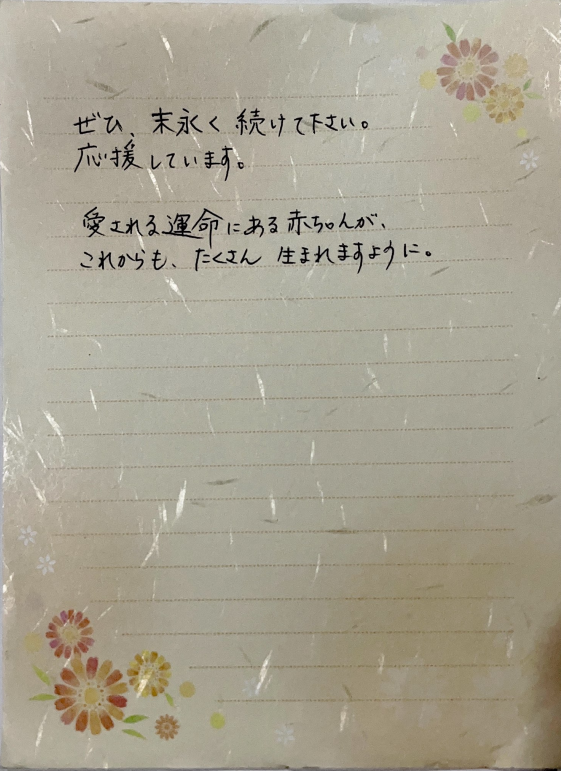 ぜひ、末永く続けて下さい。
応援しています。
愛される運命にある赤ちゃんが、
これからも、たくさん生まれますように。